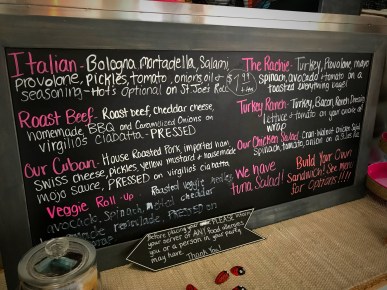 Italian - Bologna, mortadella, Salami,
provolone, pickles, tomato, onions, oil &
seasoning - Hots optional on St Joei Roll
Roast Beef - Roast beef, cheddar cheese,
homemade BBQ and Caramelized Onions on
virgilios ciabatta - PRESSED
Our Cuban - House Roasted Pork, imported ham,
Swiss cheese, pickles, yellow mustard & housemade
mojo sauce, PRESSED on virgilios ciabatta
Veggie Roll-up - Roasted veggie medley,
avocado, Spinach, melted cheddar
remoulade, PRESSED on
The Rachie - Turkey, Provolone, mayo
spinach, avocado & tomato on a
toasted everything bagel!
Turkey Ranch - Turkey, Bacon, Ranch Dressing
lettuce & tomato on your choice of
wrap!
Our Chicken Salad - Cran-Walnut Chicken Salad
Spinach, tomato, onion on a
We have
tuna Salad!
Build Your Own
Sandwich! See menu
for options!!!!
Before placing your PLEASE inform
your server of ANY food allergies
you or a person in your party
Thank You!